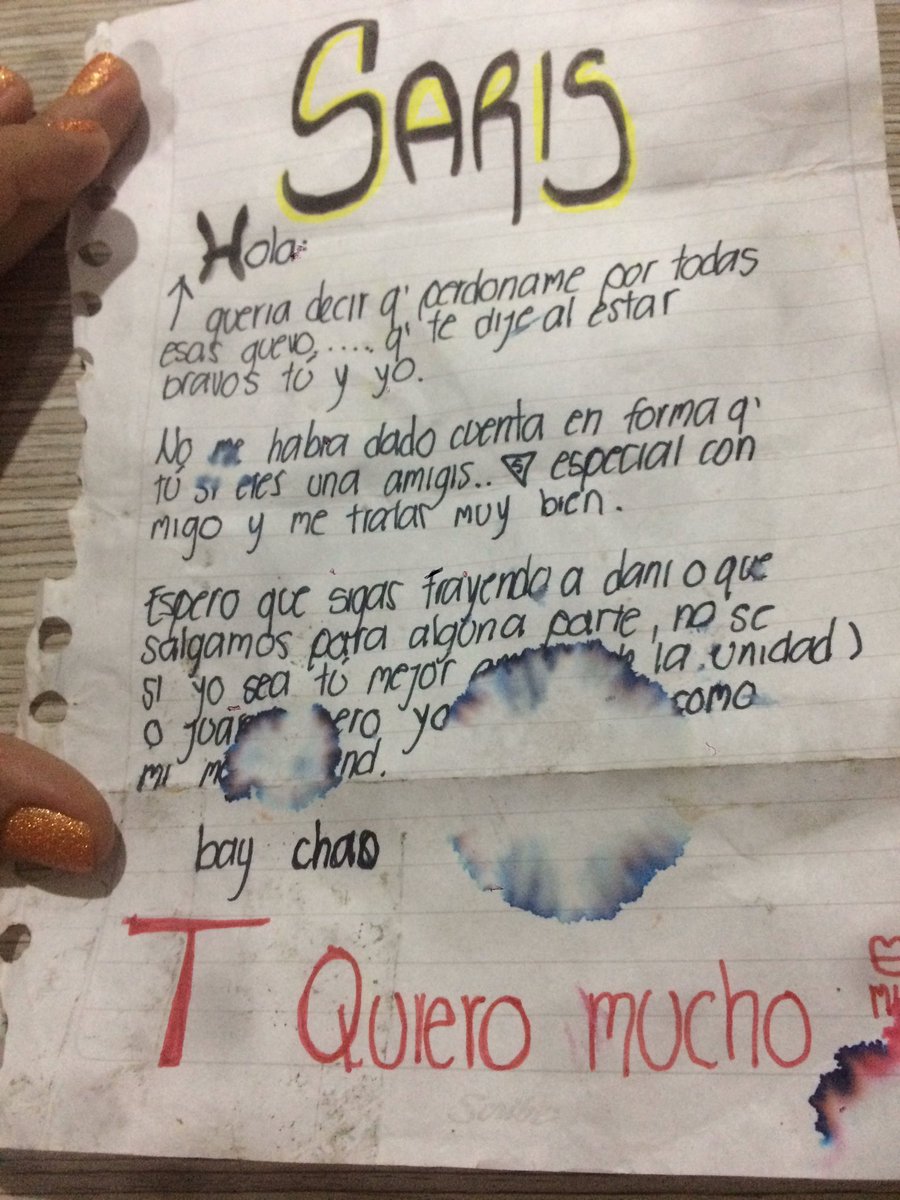 SARIS
Hola:
queria decir q' perdoname por todas
esas guevo..... q' te dije al estar
bravos tú y yo.
No me habia dado cuenta en forma q'
tú si eres una amigis.. especial con
migo y me tratar muy bien.
Espero que sigas trayendo a dani o que
salgamos para alguna parte, no se
si yo sea tú mejor la unidad)
o yo como
mi
bay chao
T Quiero mucho
Scribe